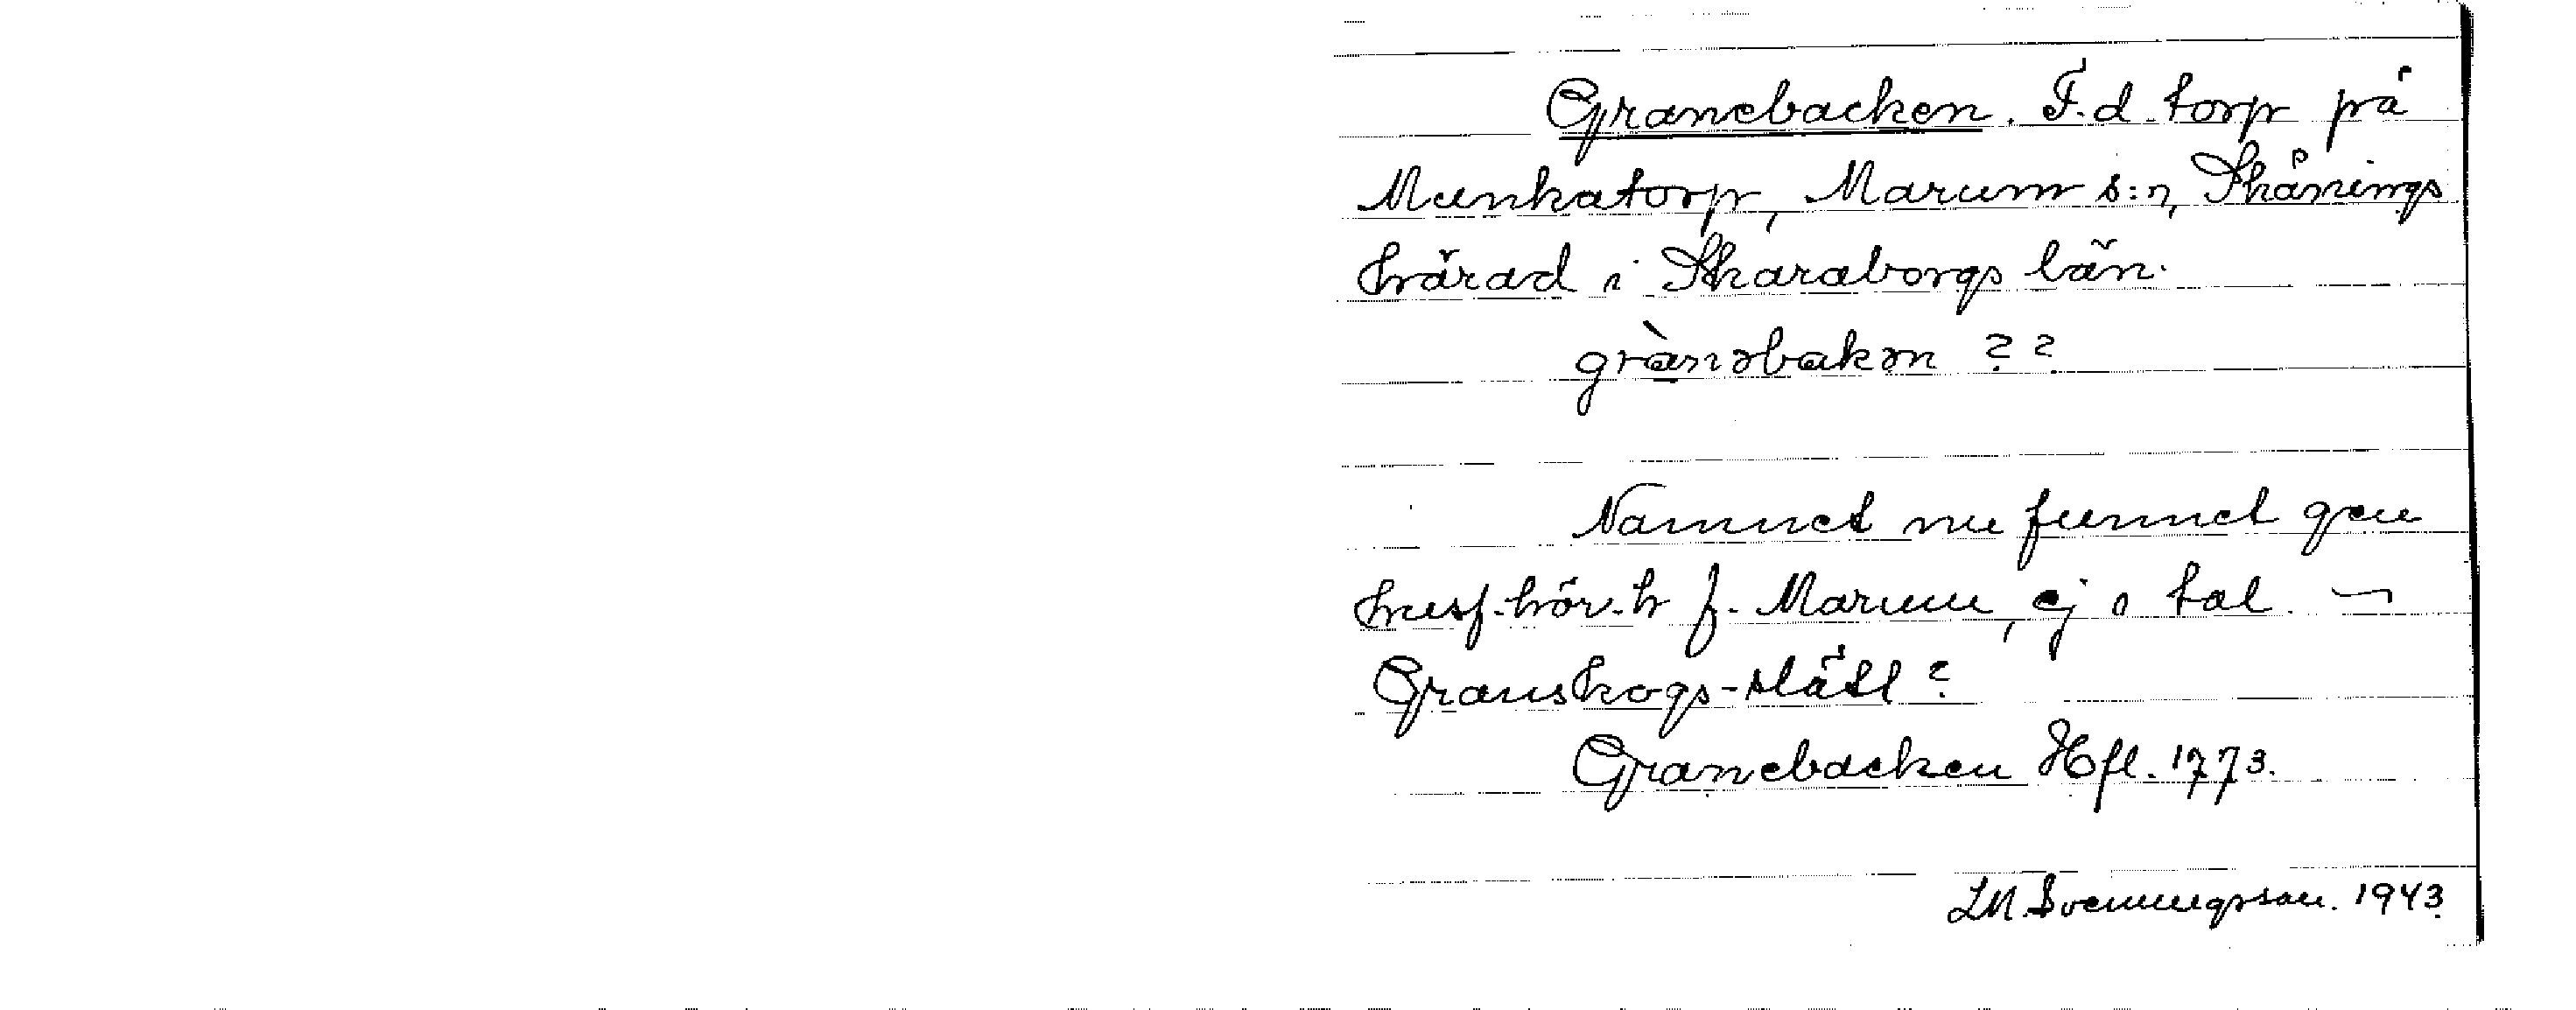 Granebacken. F.d. torp på
Munkatorp, Marum s:n, Skånings
härad i Skaraborgs län.
grànəbakən ??
Namnet nu funnet gen
husf-hör-h f. Marum, ej i tal. ⁓
Granskogs-slätt?
Granebacken Hfl. 1773.
LM. Svenungsson. 1943.